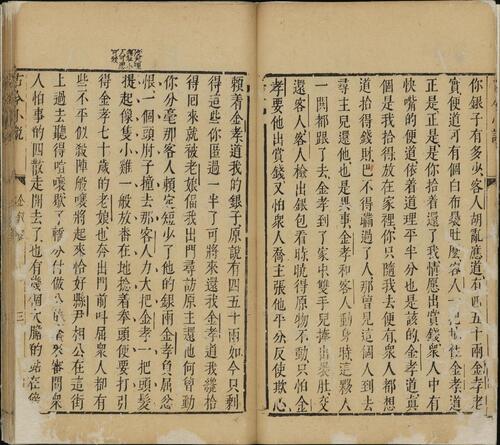 你銀子有多少客人胡亂應道有四五十兩金孝老
實便道可有個白布裹肚麼客人一把扯住金孝道
正是正是是你拾着還了我情愿出賞錢衆人中有
快嘴的便道依着道理平半分也是該的金孝道真
個是我拾得放在家裡你只隨我去便有衆人都想
道拾得錢財巴不得瞞過了人那曾見這個人到去
尋主兒還他也是異事金孝和客人動身時這夥人
一鬨都跟了去金孝到了家中雙手兒捧出裹肚交
還客人客人檢出銀包看時曉得原物不動只怕金
孝要他出賞錢又怕衆人喬主張他平分反使欺心
賴着金孝道我的銀子原說有四五十兩如今只剩
得這些你匿過一半了可將來還我金孝道我纔拾
得回來就被老娘偪我出門尋訪原主還他何曾動
你分毫那客人賴定短少了他的銀兩金孝負屈忿
恨一個頭肘子撞去那客人力大把金孝一把頭髮
提起像隻小雞一般放番在地捻着拳頭便要打引
得金孝七十歲的老娘也奔出門前叫屈衆人都有
些不平似殺陣般嚷將起來恰好縣尹相公在這街
上過去聽得喧嚷歇了轎分付做公的拿來審問衆
人怕事的四散走開去了也有幾個大膽的站在傍
古今小說
三